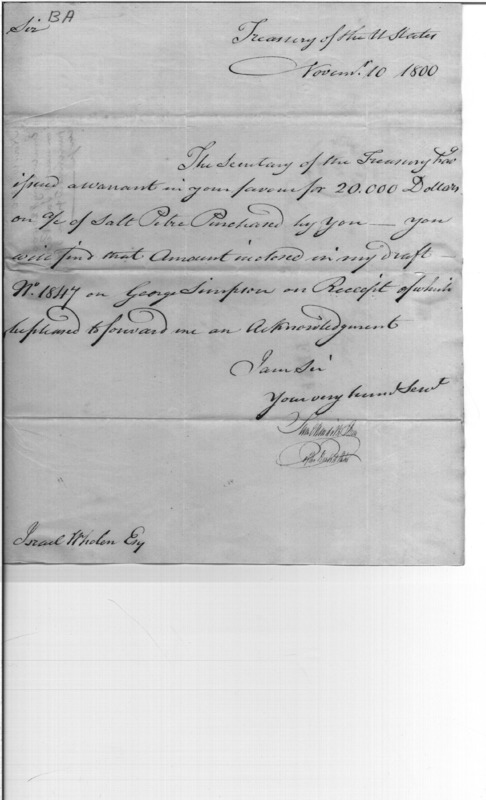 BA
Sir
Treasury of the U States
Novemr. 10 1800
The Secretary of the Treasury has
issued a warrant in your favour for 20.000 Dollars
on a/c of Salt Petre Purchased by you — you
will find that Amount inclosed in my draft
No. 1847 on George Simpson on Receipt of which
be pleased to forward me an Acknowledgment
I am Sir
Your very hum Servt
Israel Whelen Esq